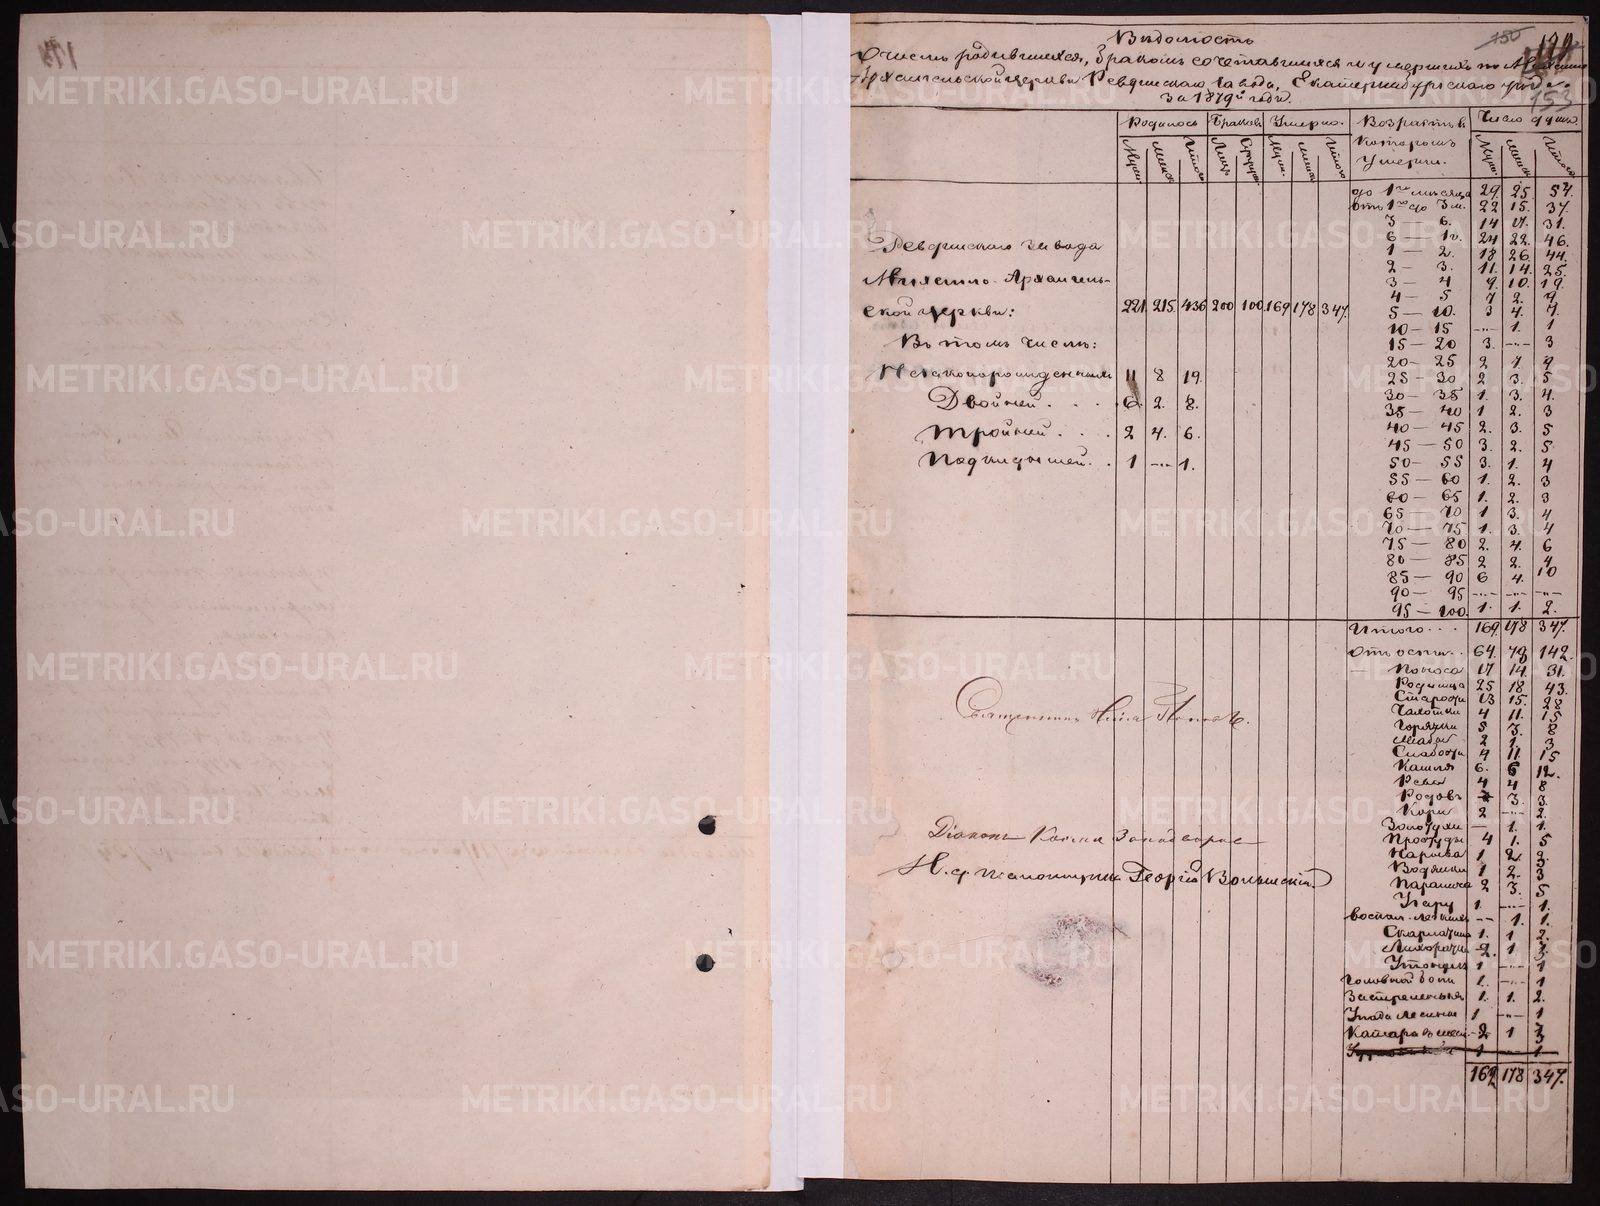 Вѣдомость
о числѣ родившихся, бракомъ сочетавшихся и умершихъ по Михаило
Архангельской церкви Ревдинскаго завода, Екатеринбургскаго уѣзда
за 1879й годъ.
150
153
Родилось Браковъ Умерло. Возрастъ въ которомъ умерли. Число душъ.
Муж. Женск. Итого Муж. Женск. Итого Муж. Женск. Итого
Ревдинскаго завода
Михаило-Архангель-
ской церкви: 221 215 436 200 100 169 178 347.
Въ томъ числѣ:
Незаконорожденныхъ 11 8 19.
Двойней . . . 6. 2. 8.
Тройней . . . 2 4. 6.
Подкидышей . . 1 -"- 1.
до 1го мѣсяца 29. 25. 54.
отъ 1го до 3 м. 22 15. 37.
3 — 6. 14 17. 31.
6 — 1г. 24 22. 46.
1 — 2. 18 26. 44.
2 — 3. 11. 14. 25.
3 — 4 9. 10. 19.
4 — 5 7 2. 9
5 — 10. 3 4. 7.
10 — 15 -"- 1. 1
15 — 20 3. -"- 3
20 — 25 2 7. 9
25 — 30 2 3. 5
30 — 35 1. 3. 4.
35 — 40 1 2. 3
40 — 45 2. 3. 5
45 — 50 3. 2. 5
50 — 55 3. 1. 4
55 — 60 1. 2. 3
60 — 65 1. 2. 3
65 — 70 1 3. 4
70 — 75 1. 3. 4
75 — 80 2. 4. 6
80 — 85 2 2. 4
85 — 90 6 4. 10
90 — 95 -"- -"- -"-
95 — 100. 1. 1. 2.
Итого . . . 169. 178 347.
Отъ оспы . . 64. 78 142.
— Поноса 17 14. 31.
Родимца 25 18 43.
Старости 13 15. 28
Чахотки 4 11. 15
Горячки 5 3. 8
2 1. 3
Слабости 4 11. 15
Кашля 6. 6 12.
4 4 8
Родовъ 3. 3.
Кори 2 -"- 2.
Золотухи — 1. 1.
Простуды 4 1. 5
Нарыва 1 2.
Водянки 1 2. 3
Паралича 2 3. 5
Угару 1. -"- 1.
воспал. легкихъ -"- 1. 1.
Скарлатины 1. 1 2.
Лихорадки 2. 1 3.
Утонулъ 1 -"- 1
Головной боли 1. -"- 1
Застрѣленъ 1. 1. 2.
1 -"- 1
2 1 3
1 1
169 178 347.
Священникъ
Діаконъ
И. д. псаломщика Георгій
METRIKI.GASO-URAL.RU